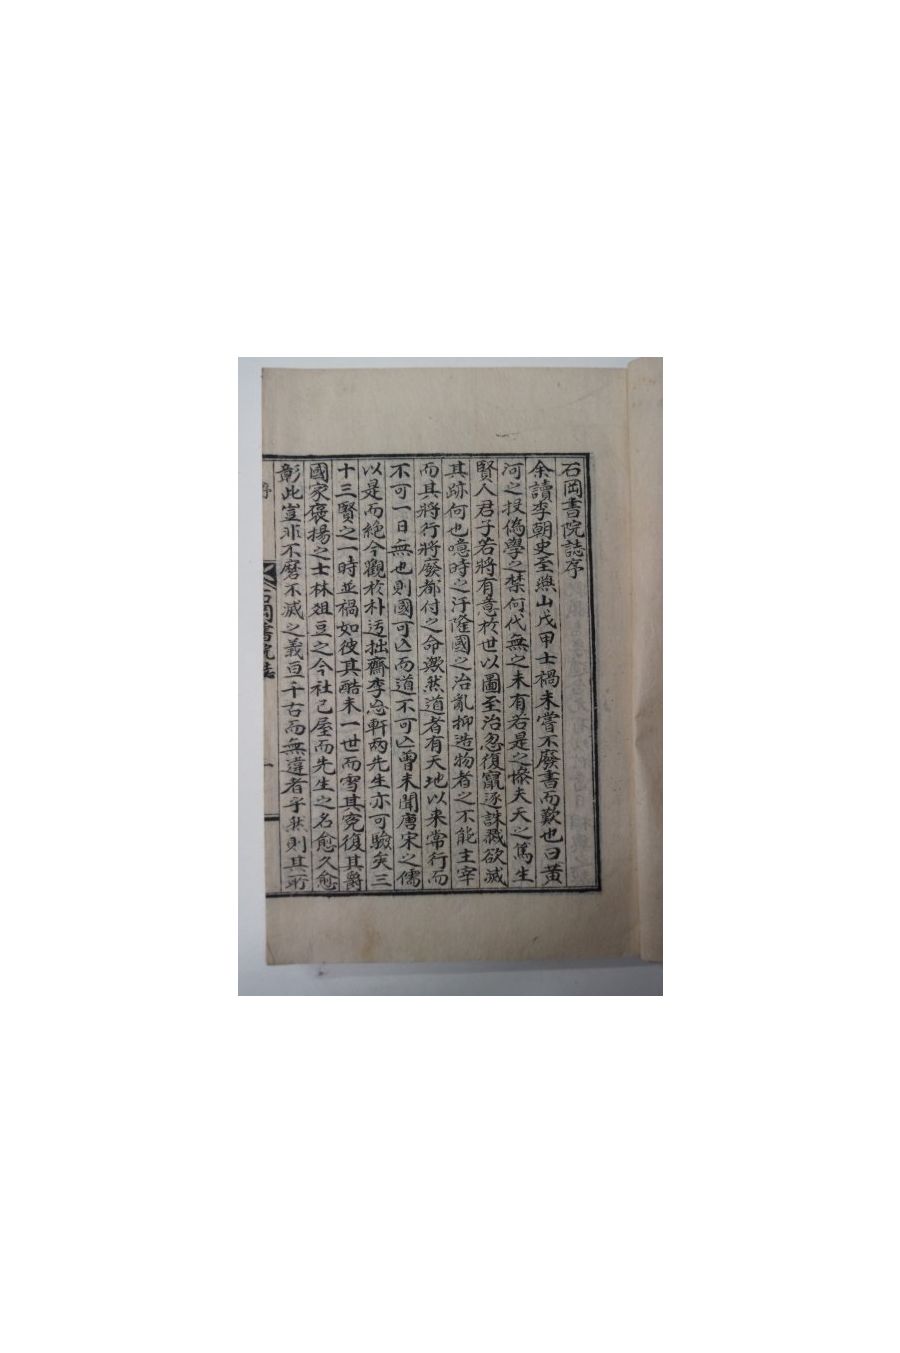 石岡書院誌序
余讀李朝史至燕山戊甲士禍未嘗不廢書而歎也曰黃
河之投僞學之禁何代無之未有若是之慘夫天之篤生
賢人君子若將有意於世以圖至治忽復竄逐誅戮欲滅
其跡何也噫時之汙隆國之治亂抑造物者之不能主宰
而其將行將廢都付之命歟然道者有天地以来常行而
不可一日無也則國可亾而道不可亾曾未聞唐宋之儒
以是而絶今觀於朴迃拙齋李忘軒兩先生亦可驗矣三
十三賢之一時並禍如彼其酷未一世而雪其冤復其爵
國家褒揚之士林俎豆之今社已屋而先生之名愈久愈
彰此豈非不磨不滅之義亘千古而無違者乎然則其所
序
石岡書院誌
一